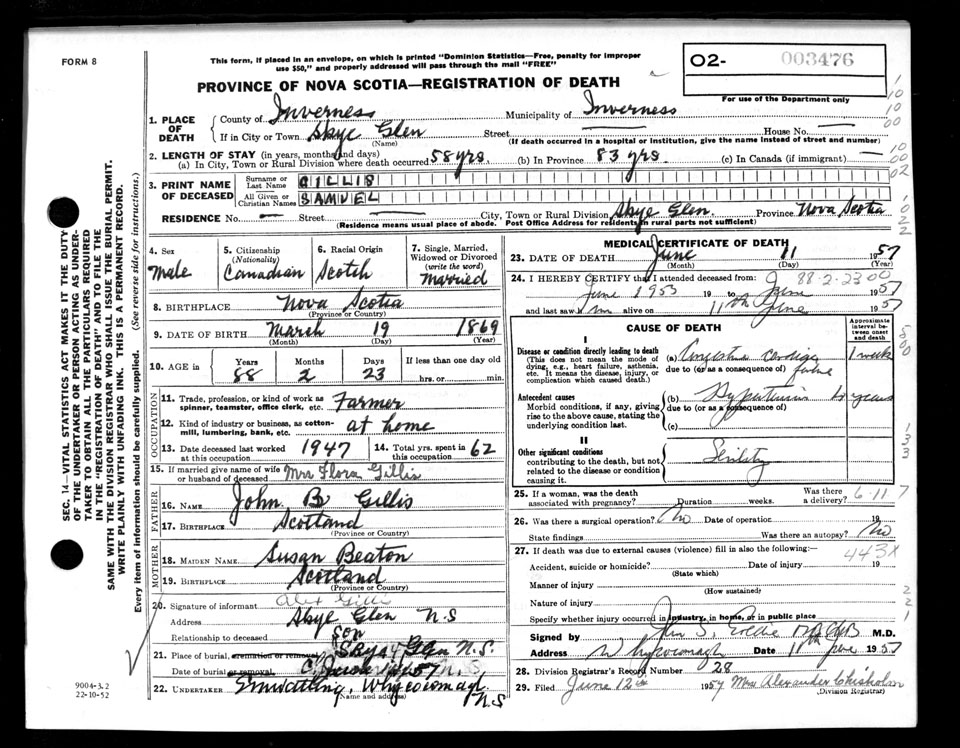 FORM 8
This form, if placed in an envelope, on which is printed "Dominion Statistics—Free, penalty for improper
use $50," and properly addressed will pass through the mail "FREE"
PROVINCE OF NOVA SCOTIA—REGISTRATION OF DEATH
O2- 003476
For use of the Department only
1. PLACE OF DEATH County of Inverness Municipality of Inverness
If in City or Town Skye Glen Street House No.
(Name) (If death occurred in a hospital or institution, give the name instead of street and number)
2. LENGTH OF STAY (in years, months and days)
(a) In City, Town or Rural Division where death occurred 58 yrs. (b) In Province 83 yrs. (c) In Canada (if immigrant) —
3. PRINT NAME OF DECEASED
Surname or Last Name GILLIS
All Given or Christian Names SAMUEL
RESIDENCE No. — Street City, Town or Rural Division Skye Glen Province Nova Scotia
(Residence means usual place of abode. Post Office Address for residents in rural parts not sufficient)
4. Sex Male
5. Citizenship (Nationality) Canadian
6. Racial Origin Scotch
7. Single, Married, Widowed or Divorced (write the word) Married
8. BIRTHPLACE Nova Scotia
(Province or Country)
9. DATE OF BIRTH March 19 1869
(Month) (Day) (Year)
10. AGE in Years 88 Months 2 Days 23 If less than one day old
hrs. or min.
OCCUPATION
11. Trade, profession, or kind of work as spinner, teamster, office clerk, etc. Farmer
12. Kind of industry or business, as cotton-mill, lumbering, bank, etc. at home
13. Date deceased last worked at this occupation 1947
14. Total yrs. spent in this occupation 62
15. If married give name of wife or husband of deceased Mrs Flora Gillis
FATHER
16. NAME John B Gillis
17. BIRTHPLACE Scotland
(Province or Country)
MOTHER
18. MAIDEN NAME Susan Beaton
19. BIRTHPLACE Scotland
(Province or Country)
20. Signature of informant Alex Gillis
Address Skye Glen N.S
Relationship to deceased Son
21. Place of burial, cremation or removal Skye Glen N.S.
Date of burial or removal
22. UNDERTAKER Whycocomagh N.S
(Name and address)
MEDICAL CERTIFICATE OF DEATH
23. DATE OF DEATH June 11 1957
(Month) (Day) (Year)
24. I HEREBY CERTIFY that I attended deceased from: 88-2-23 00
June 1953 19 to June 1957
and last saw him alive on 11th June 1957
CAUSE OF DEATH
Approximate interval between onset and death
I
Disease or condition directly leading to death
(This does not mean the mode of dying, e.g., heart failure, asthenia, etc. It means the disease, injury, or complication which caused death.)
(a) Congestive cardiac failure 1 week
due to (or as a consequence of)
Antecedent causes
Morbid conditions, if any, giving rise to the above cause, stating the underlying condition last.
(b) Hypertension 4 years
due to (or as a consequence of)
(c)
II
Other significant conditions
contributing to the death, but not related to the disease or condition causing it.
Senility
25. If a woman, was the death associated with pregnancy? Duration weeks. Was there a delivery? 6-11 7
26. Was there a surgical operation? No Date of operation 19
State findings Was there an autopsy? No
27. If death was due to external causes (violence) fill in also the following:— 443X
Accident, suicide or homicide? Date of injury 19
(State which)
Manner of injury
(How sustained)
Nature of injury
Specify whether injury occurred in industry, in home, or in public place
Signed by M.D.
Address Whycocomagh Date 11th June 1957
28. Division Registrar's Record Number 28
29. Filed June 12th 1957 Mrs Alexander Chisholm
(Division Registrar)
SEC. 14—VITAL STATISTICS ACT MAKES IT THE DUTY
OF THE UNDERTAKER OR PERSON ACTING AS UNDER-
TAKER TO OBTAIN ALL THE PARTICULARS REQUIRED
IN THE "REGISTRATION OF DEATH" AND TO FILE THE
SAME WITH THE DIVISION REGISTRAR WHO SHALL ISSUE THE BURIAL PERMIT.
WRITE PLAINLY WITH UNFADING INK. THIS IS A PERMANENT RECORD.
Every item of information should be carefully supplied. (See reverse side for instructions.)
9004-3.2
22-10-52